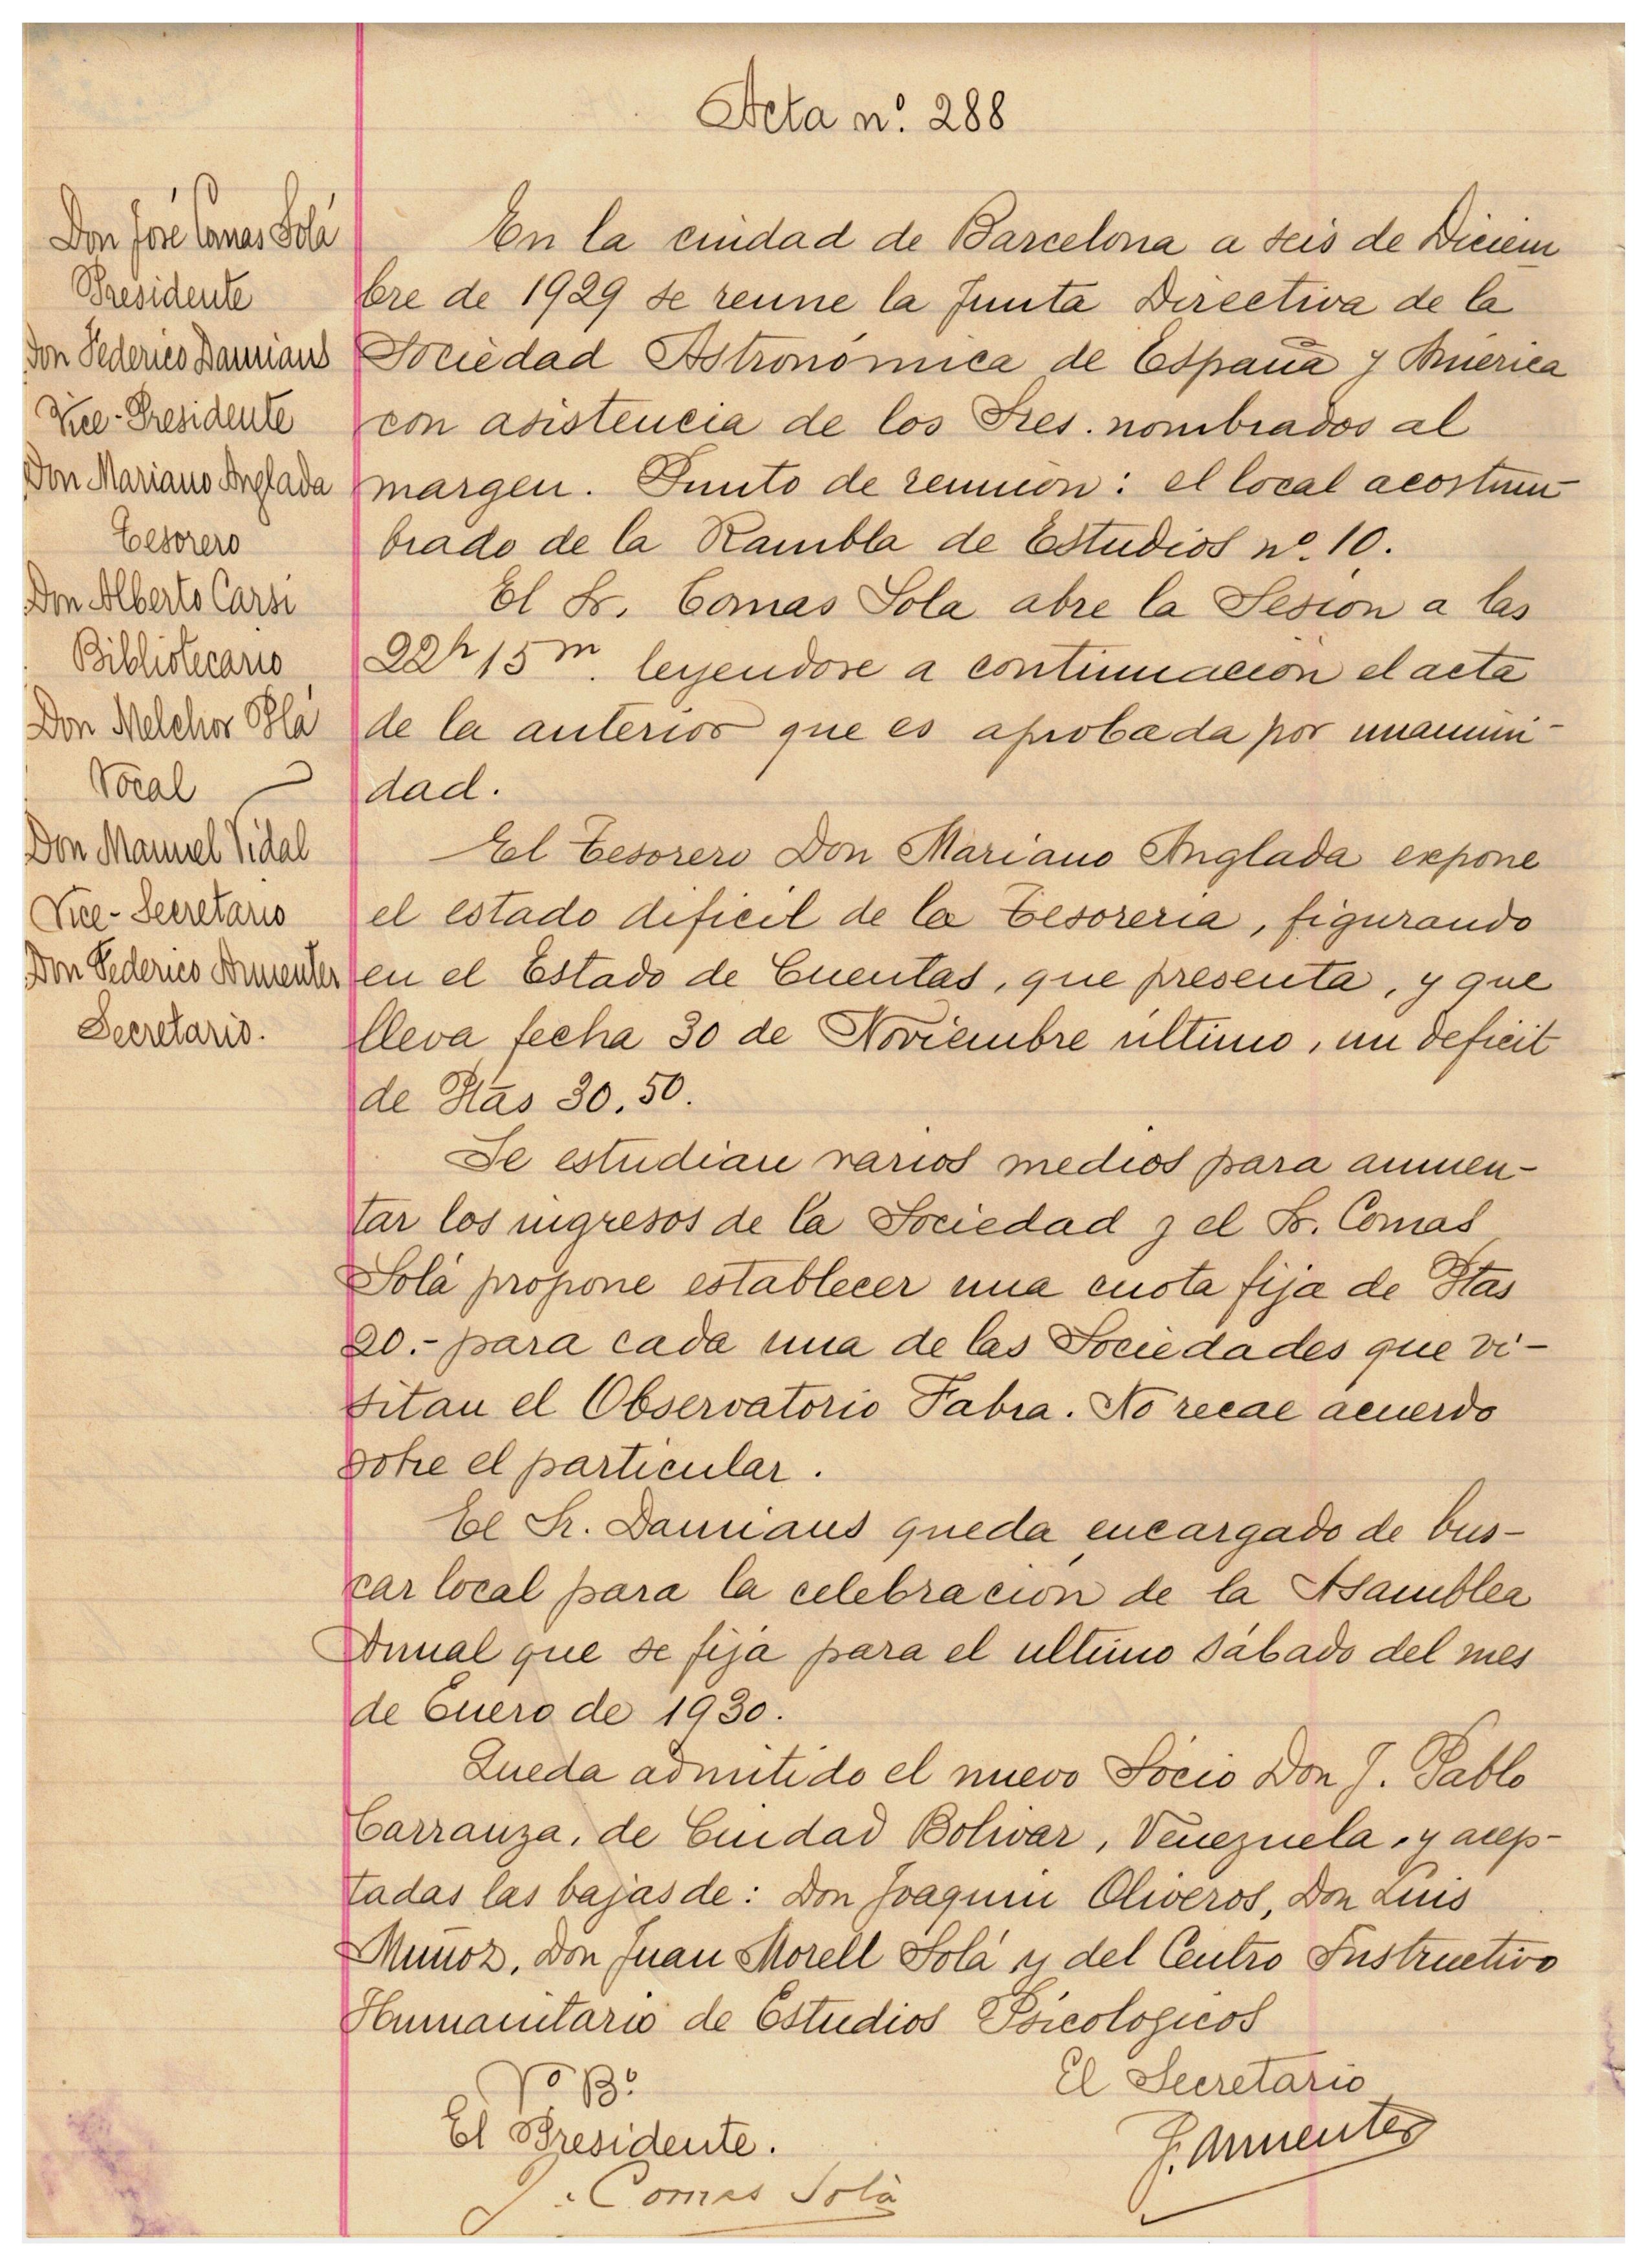 Acta nº. 288
Don José Comas Solá
Presidente
Don Federico Damians
Vice-Presidente
Don Mariano Anglada
Tesorero
Don Alberto Carsi
Bibliotecario
Don Melchor Plá
Vocal
Don Manuel Vidal
Vice-Secretario
Don Federico Armenter
Secretario.
En la ciudad de Barcelona a seis de Diciem
bre de 1929 se reune la Junta Directiva de la
Sociedad Astronómica de España y América
con asistencia de los Sres. nombrados al
margen. Punto de reunión: el local acostum-
brado de la Rambla de Estudios nº. 10.
El Sr. Comas Sola abre la Sesión a las
22h 15m. leyendose a continuación el acta
de la anterior que es aprobada por unanimi-
dad.
El Tesorero Don Mariano Anglada expone
el estado dificil de la Tesoreria, figurando
en el Estado de Cuentas, que presenta, y que
lleva fecha 30 de Noviembre último, un deficit
de Ptas 30,50.
Se estudian varios medios para aumen-
tar los ingresos de la Sociedad y el Sr. Comas
Solá propone establecer una cuota fija de Ptas
20.- para cada una de las Sociedades que vi-
sitan el Observatorio Fabra. No recae acuerdo
sobre el particular.
El Sr. Damians queda encargado de bus-
car local para la celebración de la Asamblea
Anual que se fija para el ultimo sábado del mes
de Enero de 1930.
Queda admitido el nuevo Sócio Don J. Pablo
Carranza, de Ciudad Bolivar, Venezuela, y acep-
tadas las bajas de: Don Joaquin Oliveros, Don Luis
Muñoz, Don Juan Morell Solá y del Centro Instructivo
Humanitario de Estudios Psicologicos
El Secretario
F. Armenter
Vº Bº
El Presidente.
J. Comas Solà